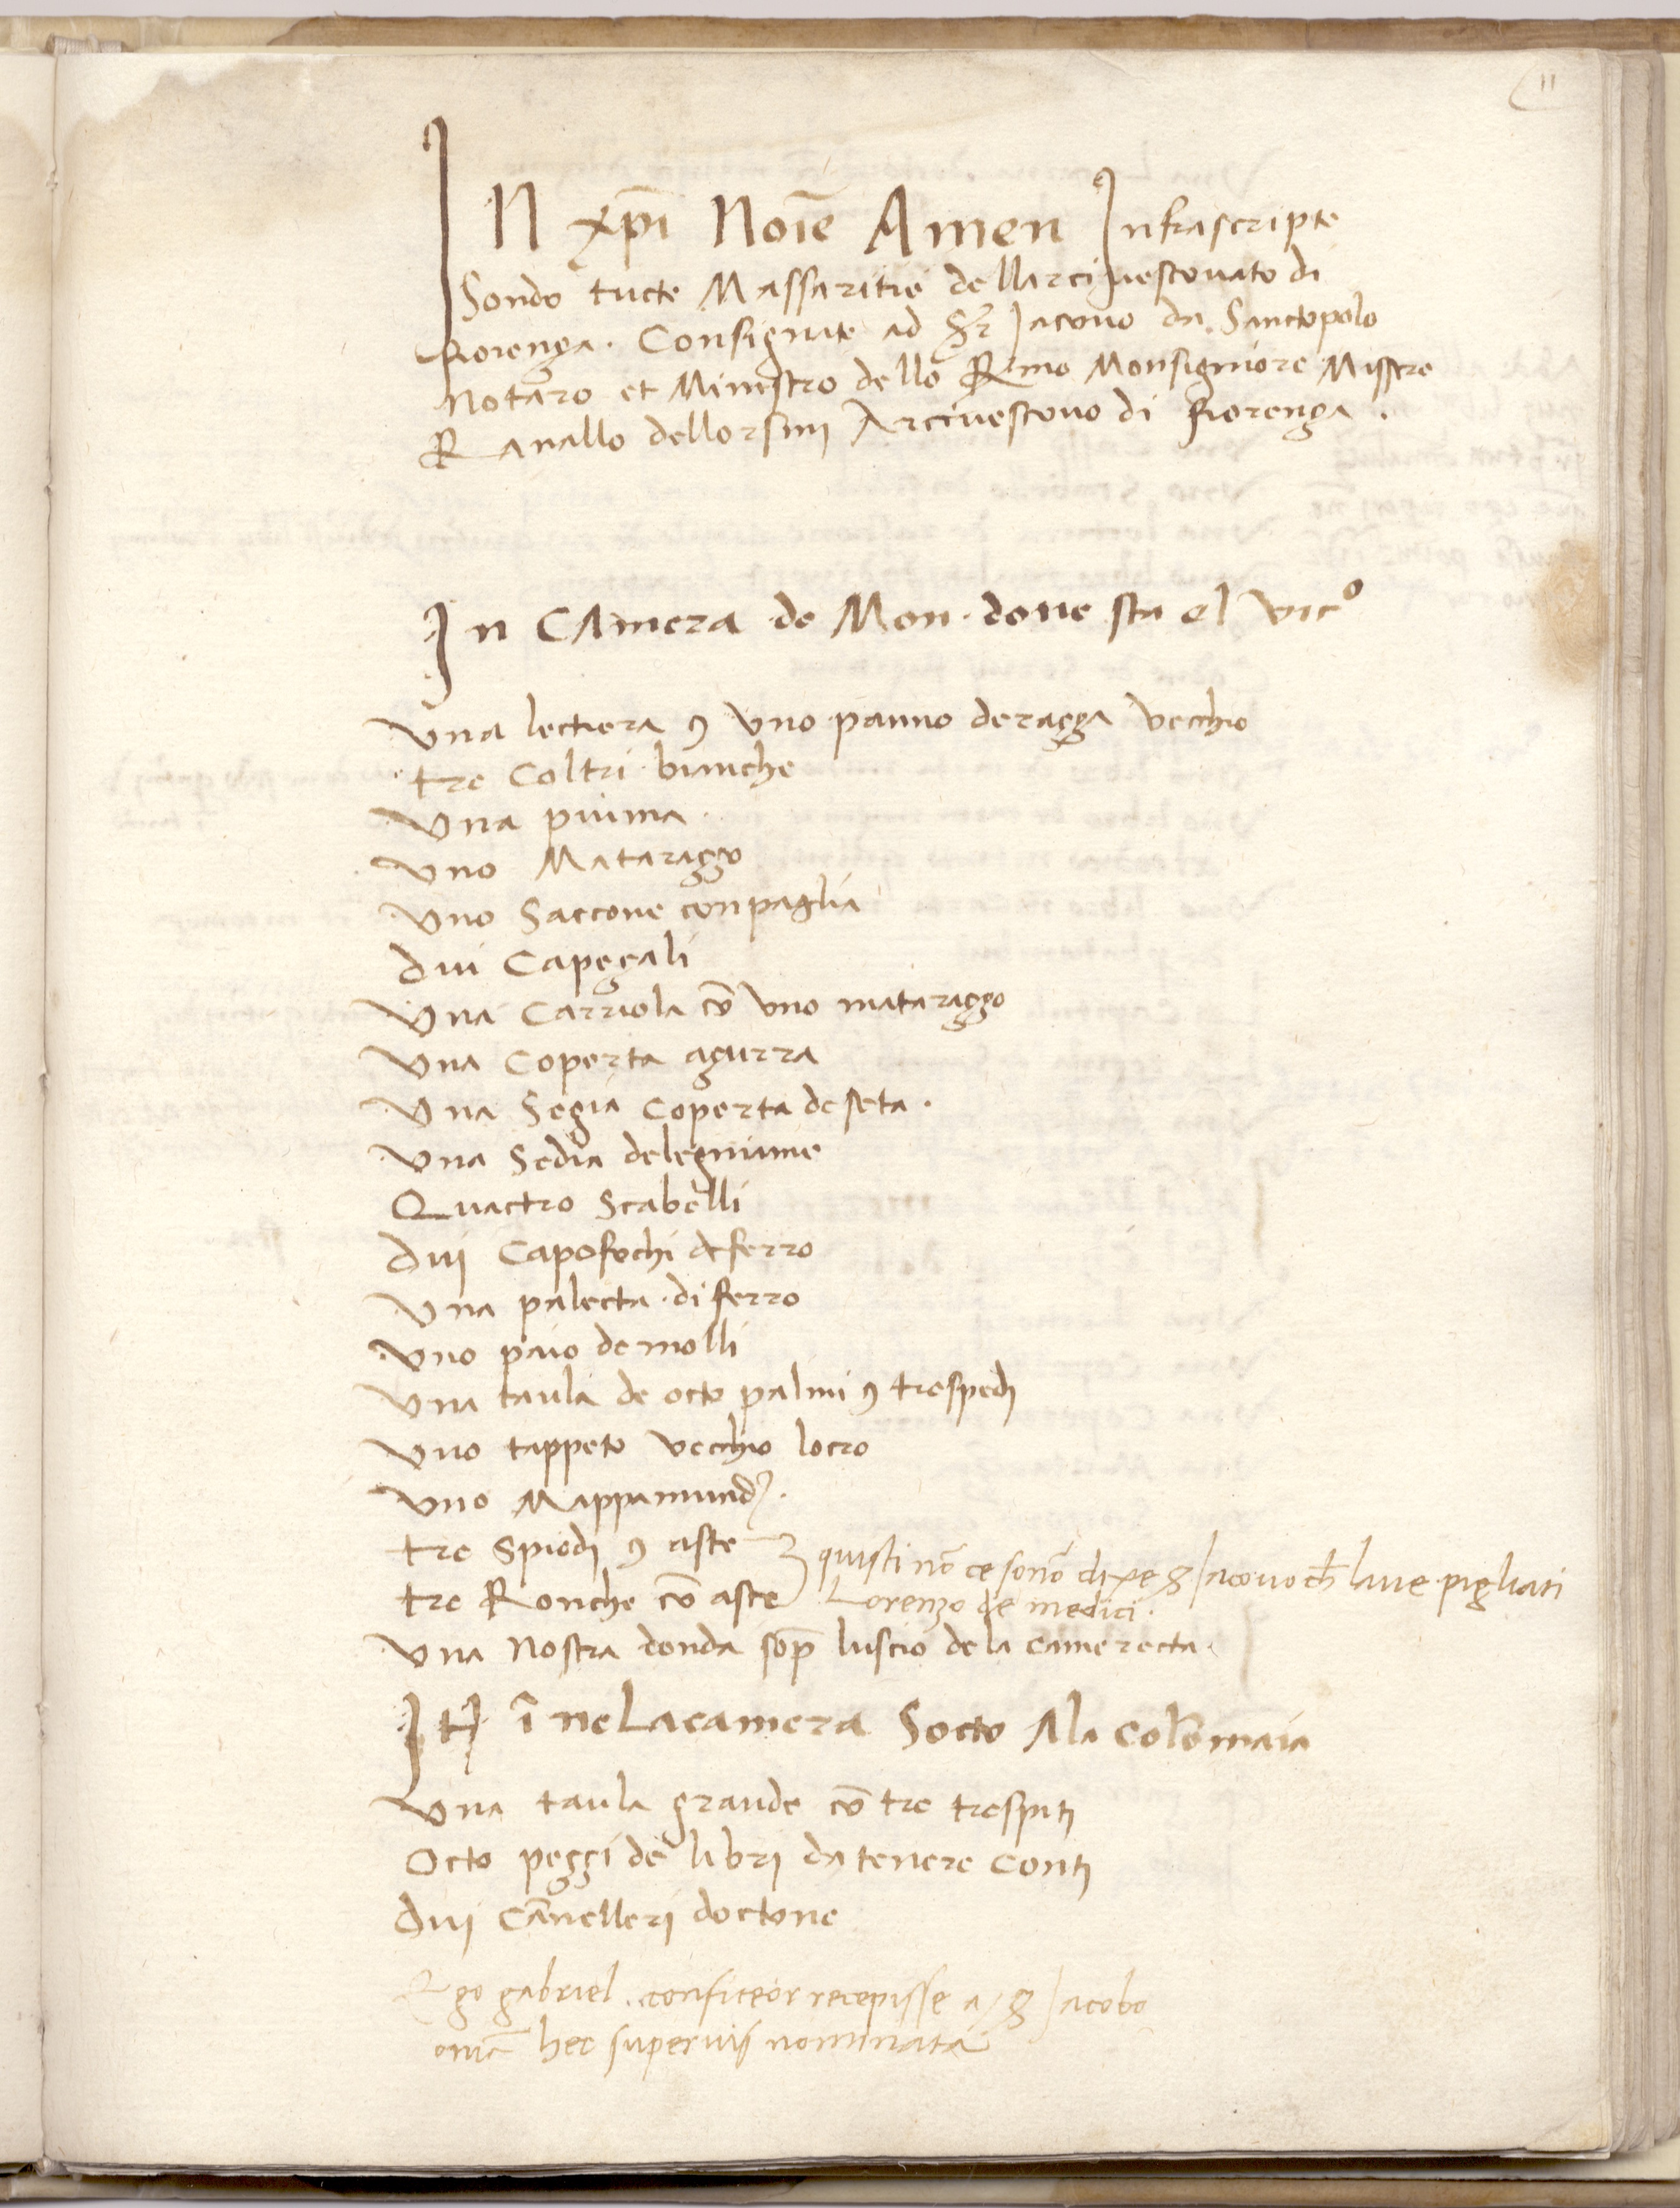 11
IN xp̄i Noīe Amen Infrascripte
Sondo tucte Massaritie dellarcivescovato di
fiorenҫa. Consignate ad Sr̄ Jacovo da Sanctopolo
Notaro et Ministro dello R̄mo Monsigniore Missere
Ranallo dellorsini Arcivescovo di fiorenҫa.
In CAmera de Mon. dove sta el vicº
Una lectiera ꝯ uno panno deraҫҫa vecchio
tre Coltri bianche
Una piuma.
Uno Mataraҫҫo
Uno Saccone conpaglia
dui Capeҫali
Una Carriola cō uno mataraҫҫo
Una Coperta aҫurra
Una Segia coperta deseta.
Una Sedia delegniame
Quactro Scabelli
duj Capofochi de ferro
Una palecta di ferro
Uno paio de molli
Una taula de octo palmi ꝯ trespedj
Uno tappeto vecchio locro
Uno Mappamundj.
tre Spiedj ꝯ aste
tre Ronche cō aste
quisti nō ce sonō dixe S Jacovo ch̄ lave pigliati
Lorenzo de medici.
Una Nostra donda sop̄ luscio de la camerecta.
Itē ī neLacamera Socto Ala Colōmaia
Una taula grande cō tre trespitj
Octo peҫҫi de libri da tenere contj
duj Cānellerj doctone
Ego gabriel. confiteor recepisse a S Jacobo
om̄ia hec superius nominata